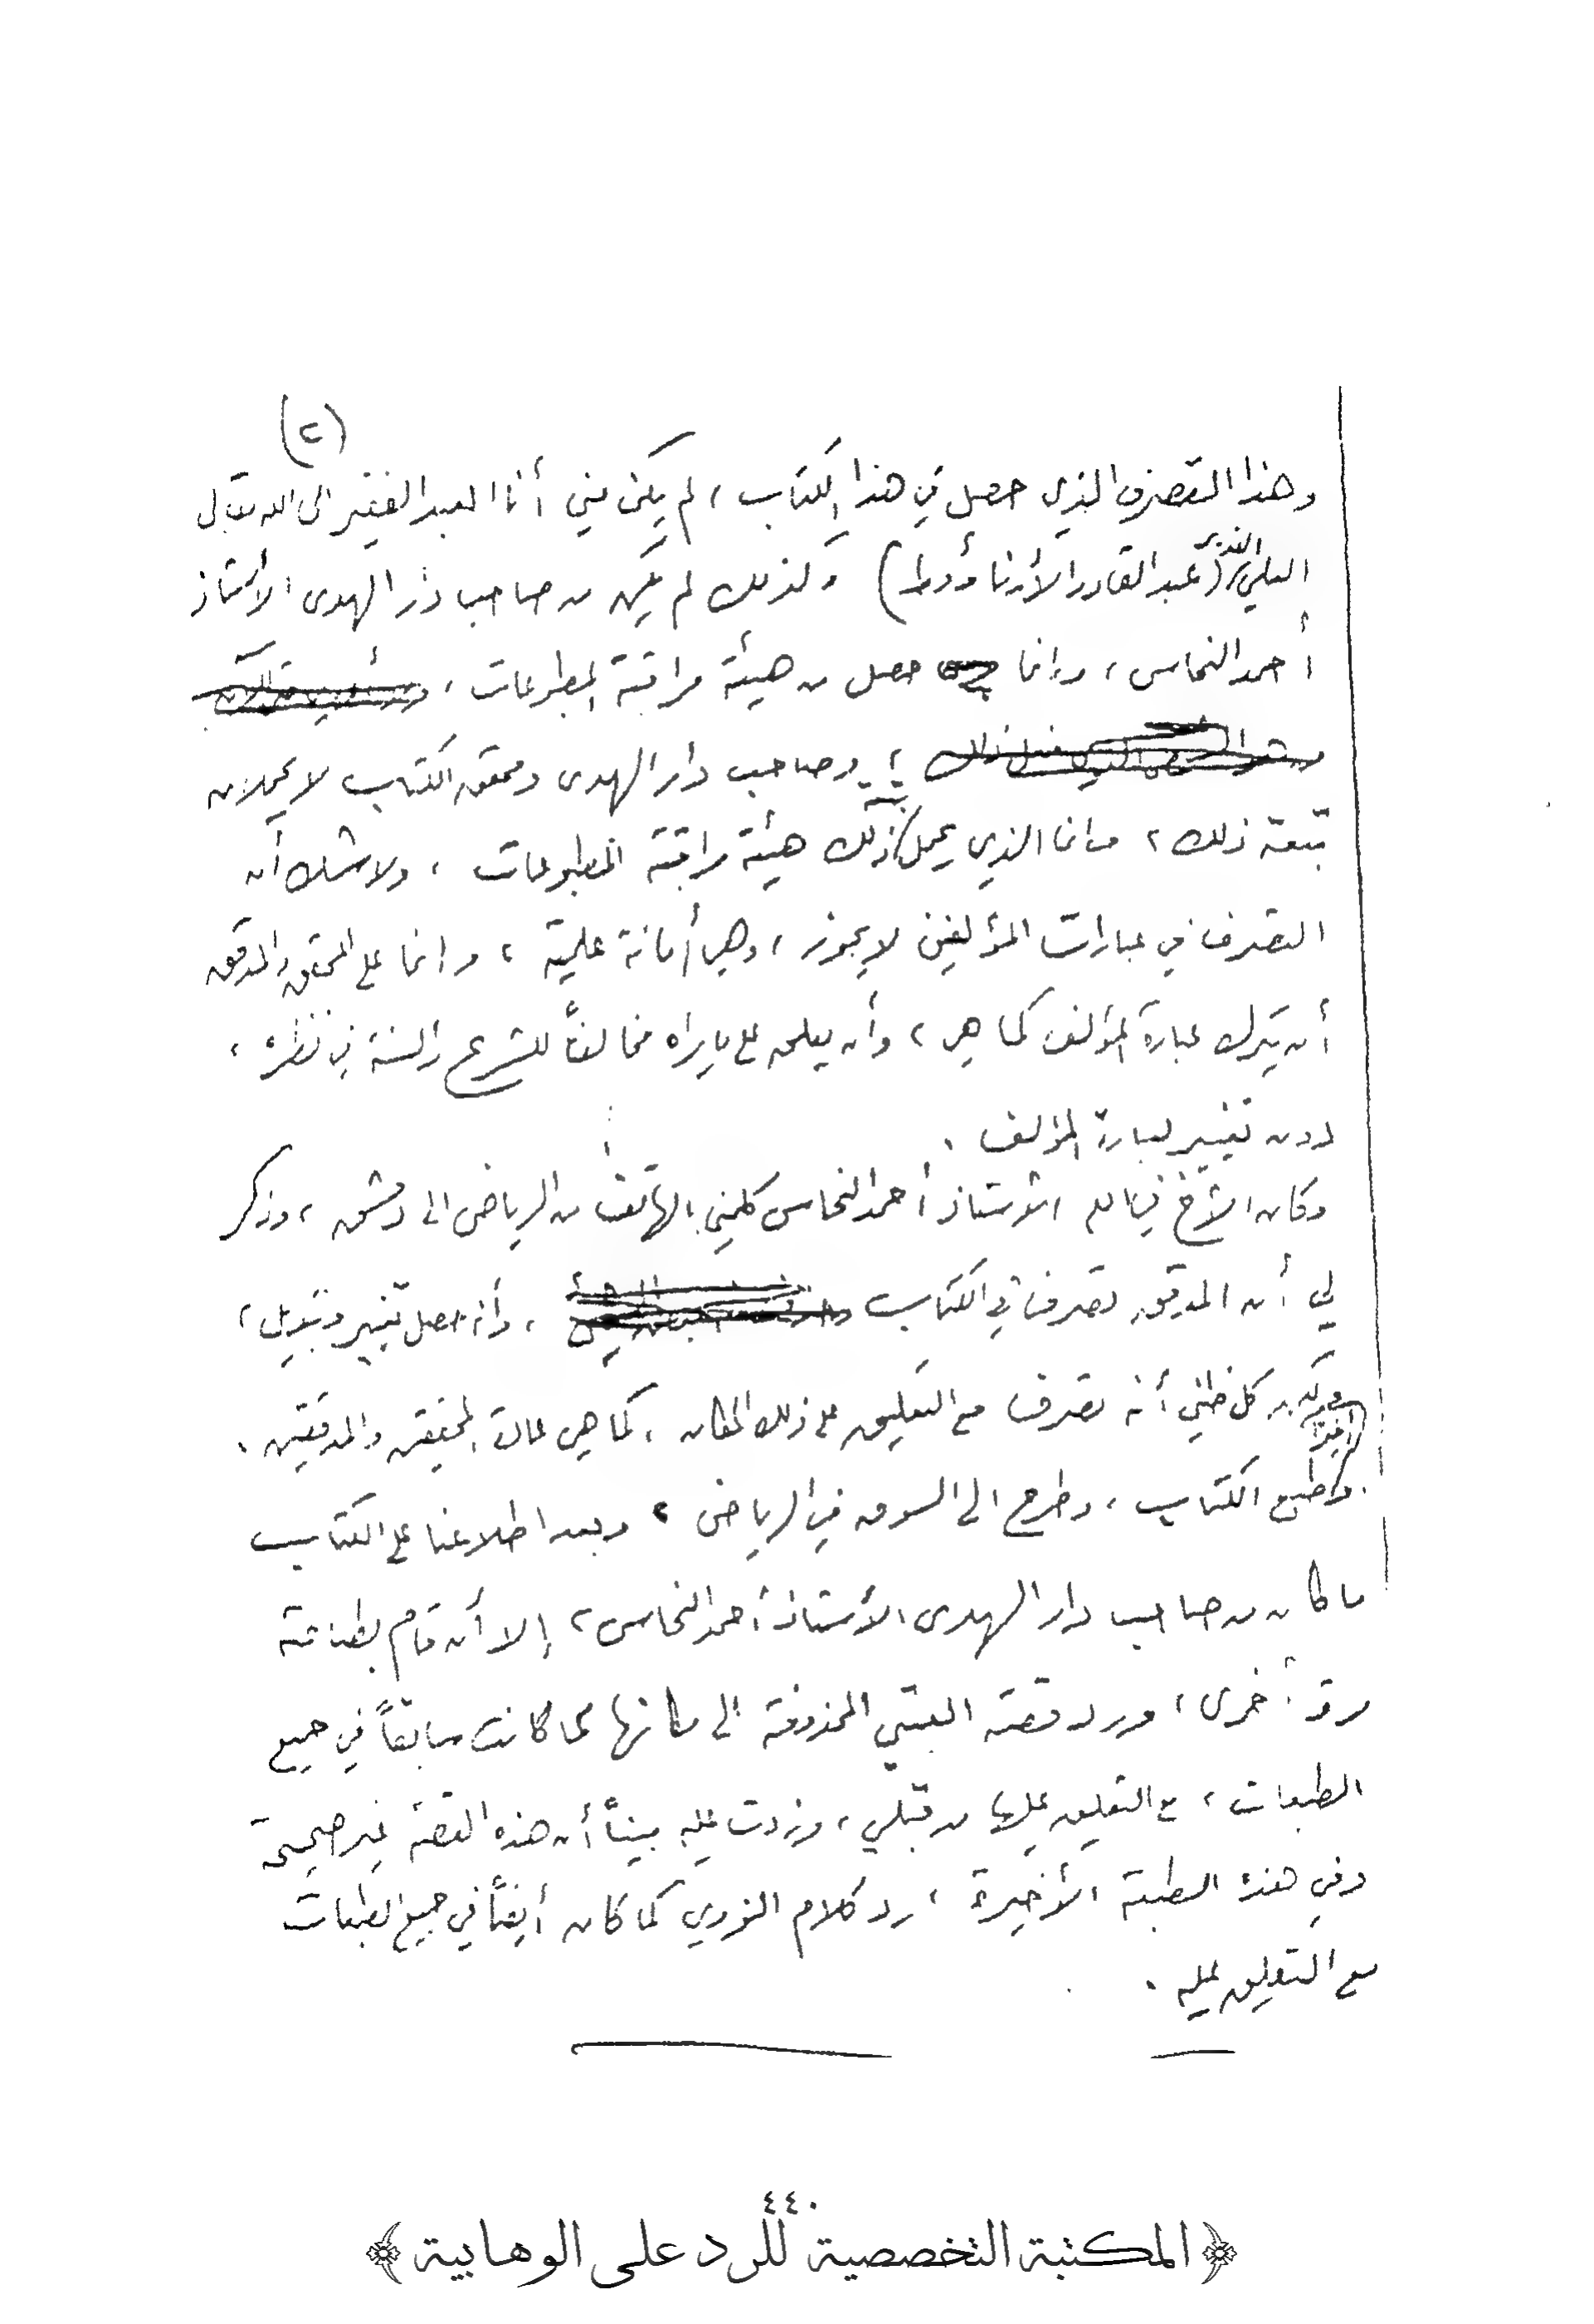 (٢)
وهذا التصرف الذي حصل في هذا الكتاب ، لم يكن مني أنا العبد الفقير الى الله تعالى
العلي القدير (عبد القادر الأرناؤوط) وكذلك لم يكن من صاحب دار الهدى الأستاذ
أحمد النحاس ، وإنما حصل من هيئة مراقبة المطبوعات ،
وصاحب دار الهدى ومحقق الكتاب لا يحملان
تبعة ذلك ، وانما الذي يحمل تبعة ذلك هيئة مراقبة المطبوعات ، ولا شك أن
التصرف في عبارات المؤلفين لا يجوز ، وهي أمانة علمية ، وانما على المحقق والمدقق
أن يترك عبارة المؤلف كما هي ، وأن يعلق على ما يراه مخالفاً للشرع والسنة في نظره ،
دون تغيير لعبارة المؤلف .
وكان الأخ في الله الأستاذ أحمد النحاس كلمني بالهاتف من الرياض الى دمشق ، وذكر
لي أن المدقق تصرف في الكتاب ، وأنه حصل تغيير وتبديل ،
كل ظني أنه تصرف مع التعليق على ذلك المكان ، كما هي عادة المحققين والمدققين .
وأخيراً طبع الكتاب ، وطرح الى السوق في الرياض ، وبعد اطلاعنا على الكتاب
ما كان من صاحب دار الهدى الأستاذ أحمد النحاس ، إلا أن قام بطباعته
مرة أخرى ، ورد قصة العتبي المحذوفة الى مكانها كما كانت سابقاً في جميع
الطبعات ، مع التعليق عليها من قبلي ، وزدت عليه مبيناً أن هذه القصة غير صحيحة
وفي هذه الطبعة الأخيرة ، رد كلام النووي كما كان أيضاً في جميع الطبعات
مع التعليق عليه .
٤٤٠
﴿المكتبة التخصصية للرد على الوهابية﴾